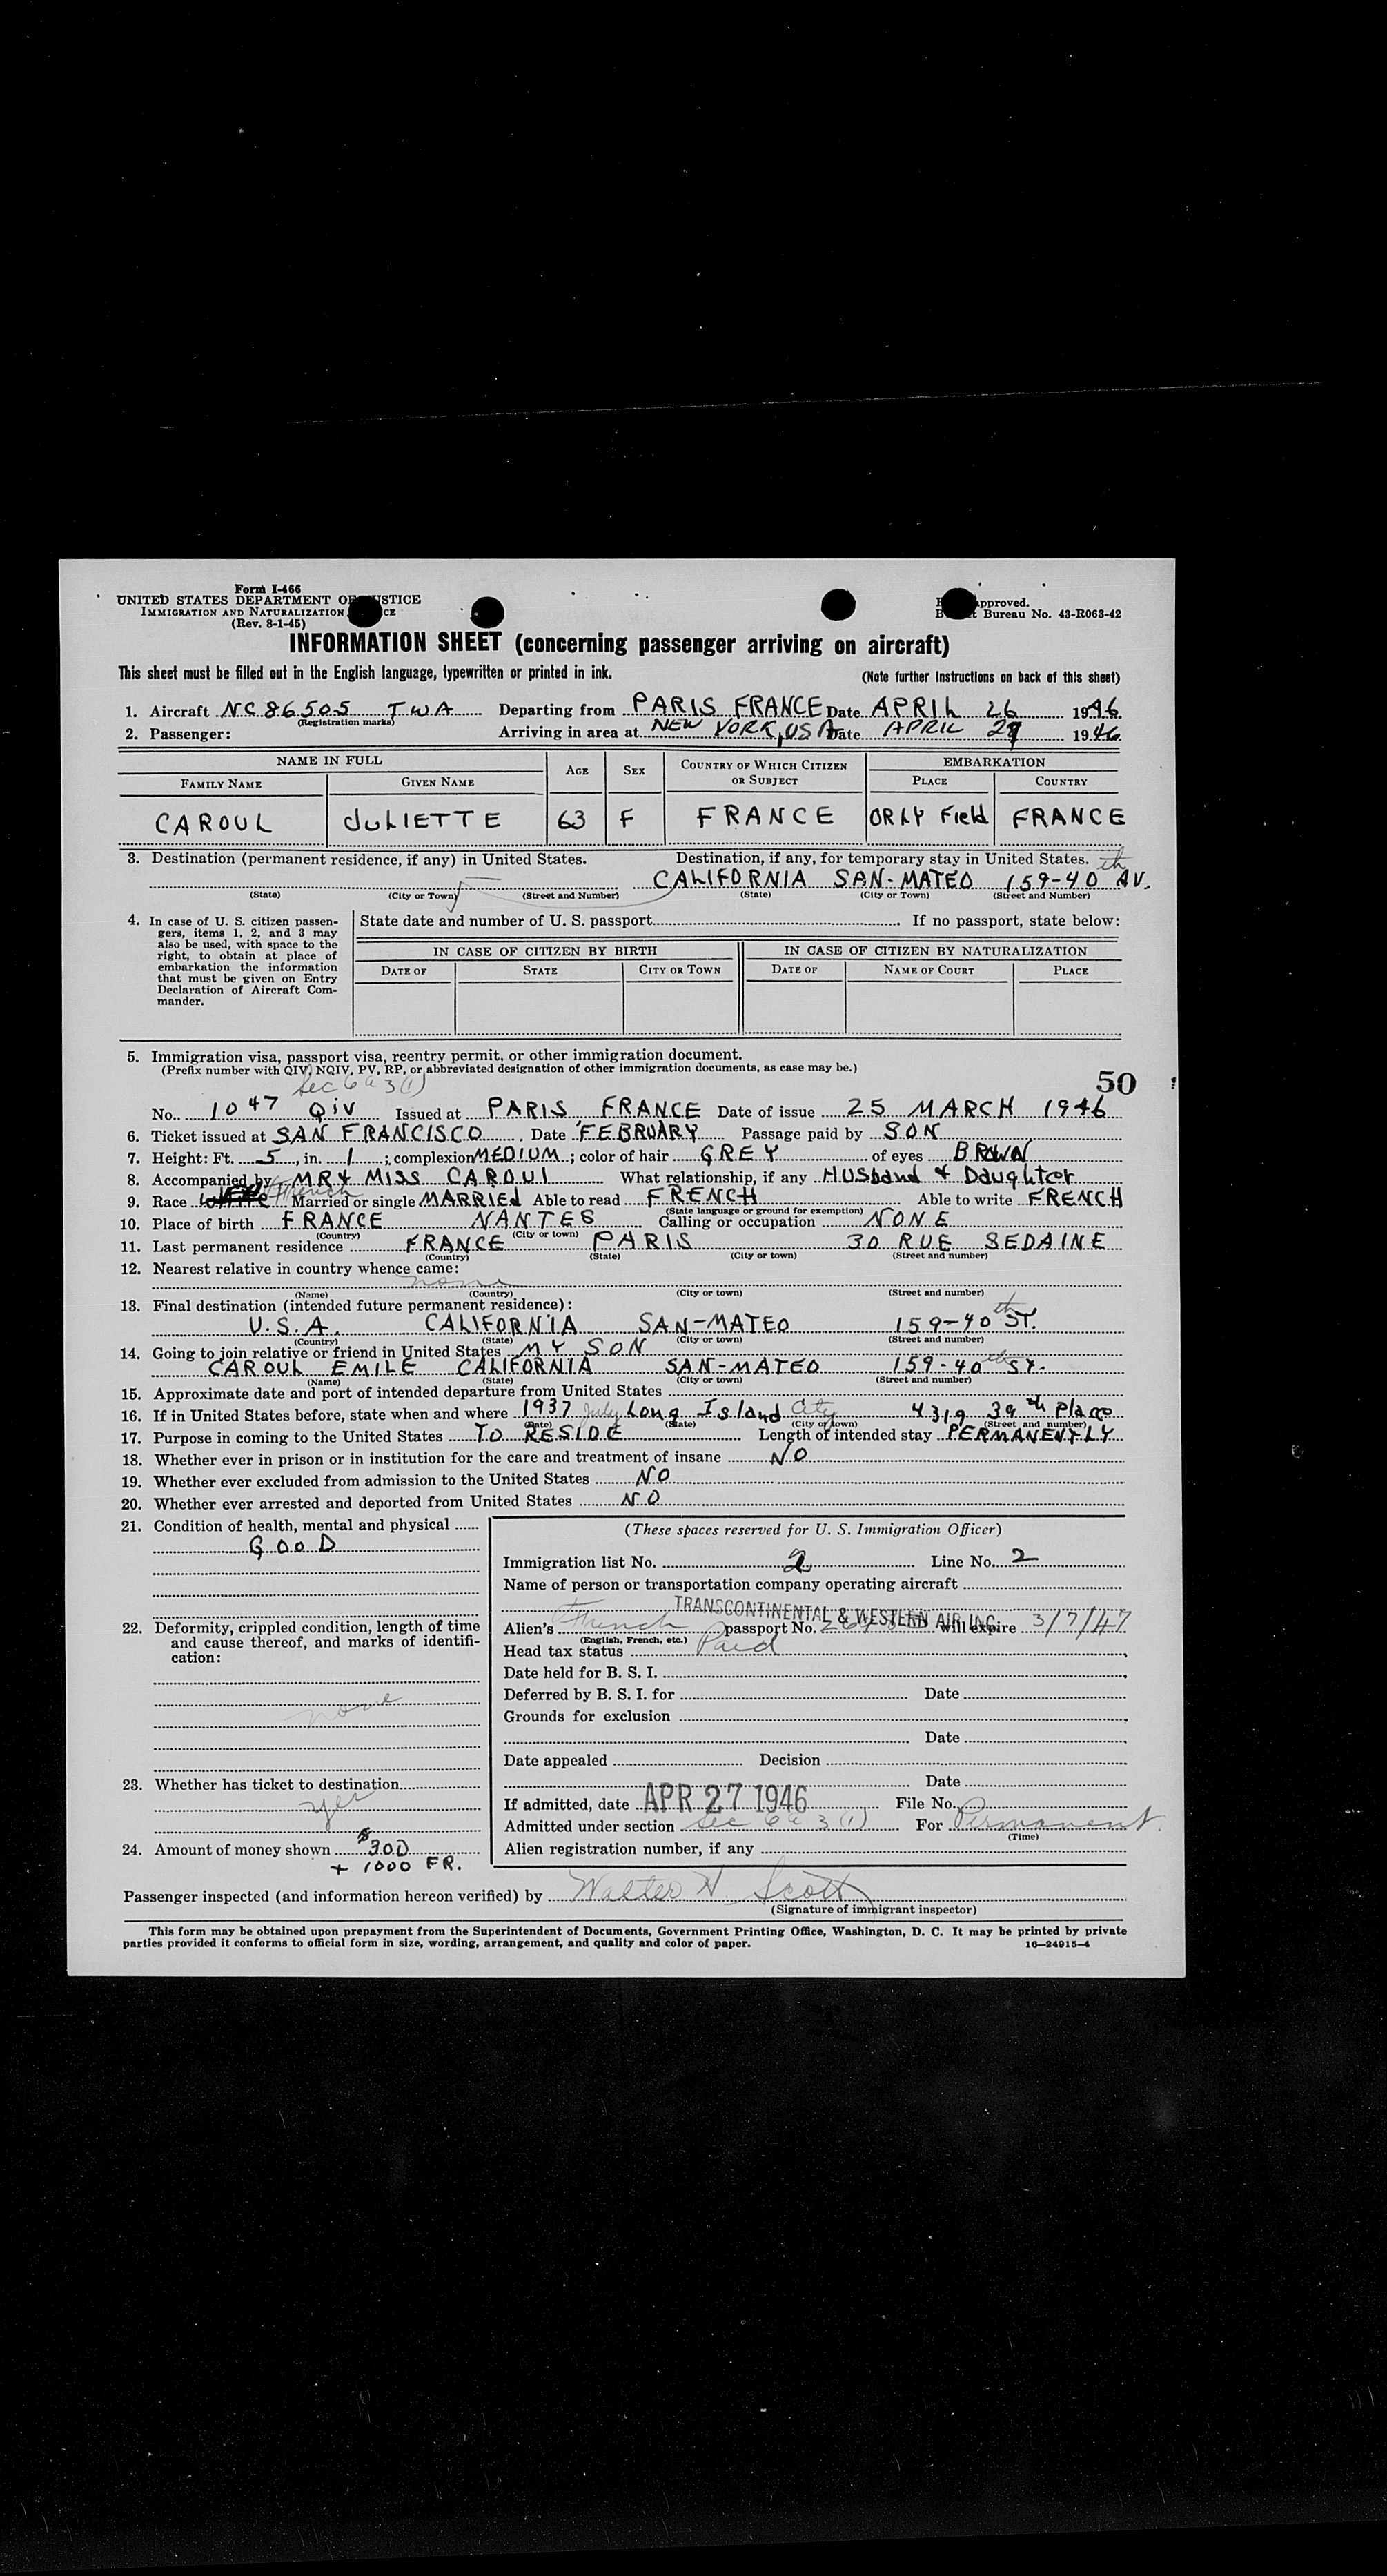 Form I-466
UNITED STATES DEPARTMENT OF JUSTICE
IMMIGRATION AND NATURALIZATION
(Rev. 8-1-45)
Approved.
Bureau No. 43-R063-42
INFORMATION SHEET (concerning passenger arriving on aircraft)
This sheet must be filled out in the English language, typewritten or printed in ink. (Note further instructions on back of this sheet)
1. Aircraft NC 86505 TWA Departing from PARIS FRANCE Date APRIL 26 1946
(Registration marks)
2. Passenger: Arriving in area at NEW YORK, USA Date APRIL 27 1946
NAME IN FULL AGE SEX COUNTRY OF WHICH CITIZEN OR SUBJECT EMBARKATION
FAMILY NAME GIVEN NAME PLACE COUNTRY
CAROUL JULIETTE 63 F FRANCE ORLY Field FRANCE
3. Destination (permanent residence, if any) in United States. Destination, if any, for temporary stay in United States.
CALIFORNIA SAN-MATEO 159-40th AV.
(State) (City or Town) (Street and Number) (State) (City or Town) (Street and Number)
4. In case of U. S. citizen passengers, items 1, 2, and 3 may also be used, with space to the right, to obtain at place of embarkation the information that must be given on Entry Declaration of Aircraft Commander.
State date and number of U. S. passport If no passport, state below:
IN CASE OF CITIZEN BY BIRTH IN CASE OF CITIZEN BY NATURALIZATION
DATE OF STATE CITY OR TOWN DATE OF NAME OF COURT PLACE
5. Immigration visa, passport visa, reentry permit, or other immigration document.
(Prefix number with QIV, NQIV, PV, RP, or abbreviated designation of other immigration documents, as case may be.)
Sec 6 a 3 (1)
50
No. 1047 QIV Issued at PARIS FRANCE Date of issue 25 MARCH 1946
6. Ticket issued at SAN FRANCISCO. Date FEBRUARY Passage paid by SON
7. Height: Ft. 5, in. 1; complexion MEDIUM; color of hair GREY of eyes BROWN
8. Accompanied by MR & MISS CAROUL What relationship, if any Husband & Daughter
9. Race French Married or single MARRIEd Able to read FRENCH Able to write FRENCH
(State language or ground for exemption)
10. Place of birth FRANCE NANTES Calling or occupation NONE
(Country) (City or town)
11. Last permanent residence FRANCE PARIS 30 RUE SEDAINE
(Country) (State) (City or town) (Street and number)
12. Nearest relative in country whence came:
none
(Name) (Country) (City or town) (Street and number)
13. Final destination (intended future permanent residence):
U.S.A. CALIFORNIA SAN-MATEO 159-40th ST.
(Country) (State) (City or town) (Street and number)
14. Going to join relative or friend in United States MY SON
CAROUL EMILE CALIFORNIA SAN-MATEO 159-40th St.
(Name) (State) (City or town) (Street and number)
15. Approximate date and port of intended departure from United States
16. If in United States before, state when and where 1937 July Long Island City 4319 39th Place
(Date) (State) (City or town) (Street and number)
17. Purpose in coming to the United States TO RESIDE Length of intended stay PERMANENTLY
18. Whether ever in prison or in institution for the care and treatment of insane NO
19. Whether ever excluded from admission to the United States NO
20. Whether ever arrested and deported from United States NO
21. Condition of health, mental and physical
GOOD
22. Deformity, crippled condition, length of time and cause thereof, and marks of identification:
none
23. Whether has ticket to destination
yes
24. Amount of money shown $300
+ 1000 FR.
(These spaces reserved for U. S. Immigration Officer)
Immigration list No. 2 Line No. 2
Name of person or transportation company operating aircraft
TRANSCONTINENTAL & WESTERN AIR INC.
Alien's French passport No. will expire 3/7/47
(English, French, etc.)
Head tax status Paid
Date held for B. S. I.
Deferred by B. S. I. for Date
Grounds for exclusion
Date
Date appealed Decision
Date
If admitted, date APR 27 1946 File No.
Admitted under section Sec 6 a 3 (1) For Permanent
(Time)
Alien registration number, if any
Passenger inspected (and information hereon verified) by Walter H. Scott
(Signature of immigrant inspector)
This form may be obtained upon prepayment from the Superintendent of Documents, Government Printing Office, Washington, D. C. It may be printed by private
parties provided it conforms to official form in size, wording, arrangement, and quality and color of paper. 16—24915-4